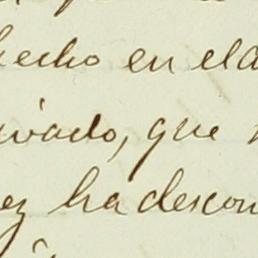 hecho en el a
ivado, que
ez ha descon